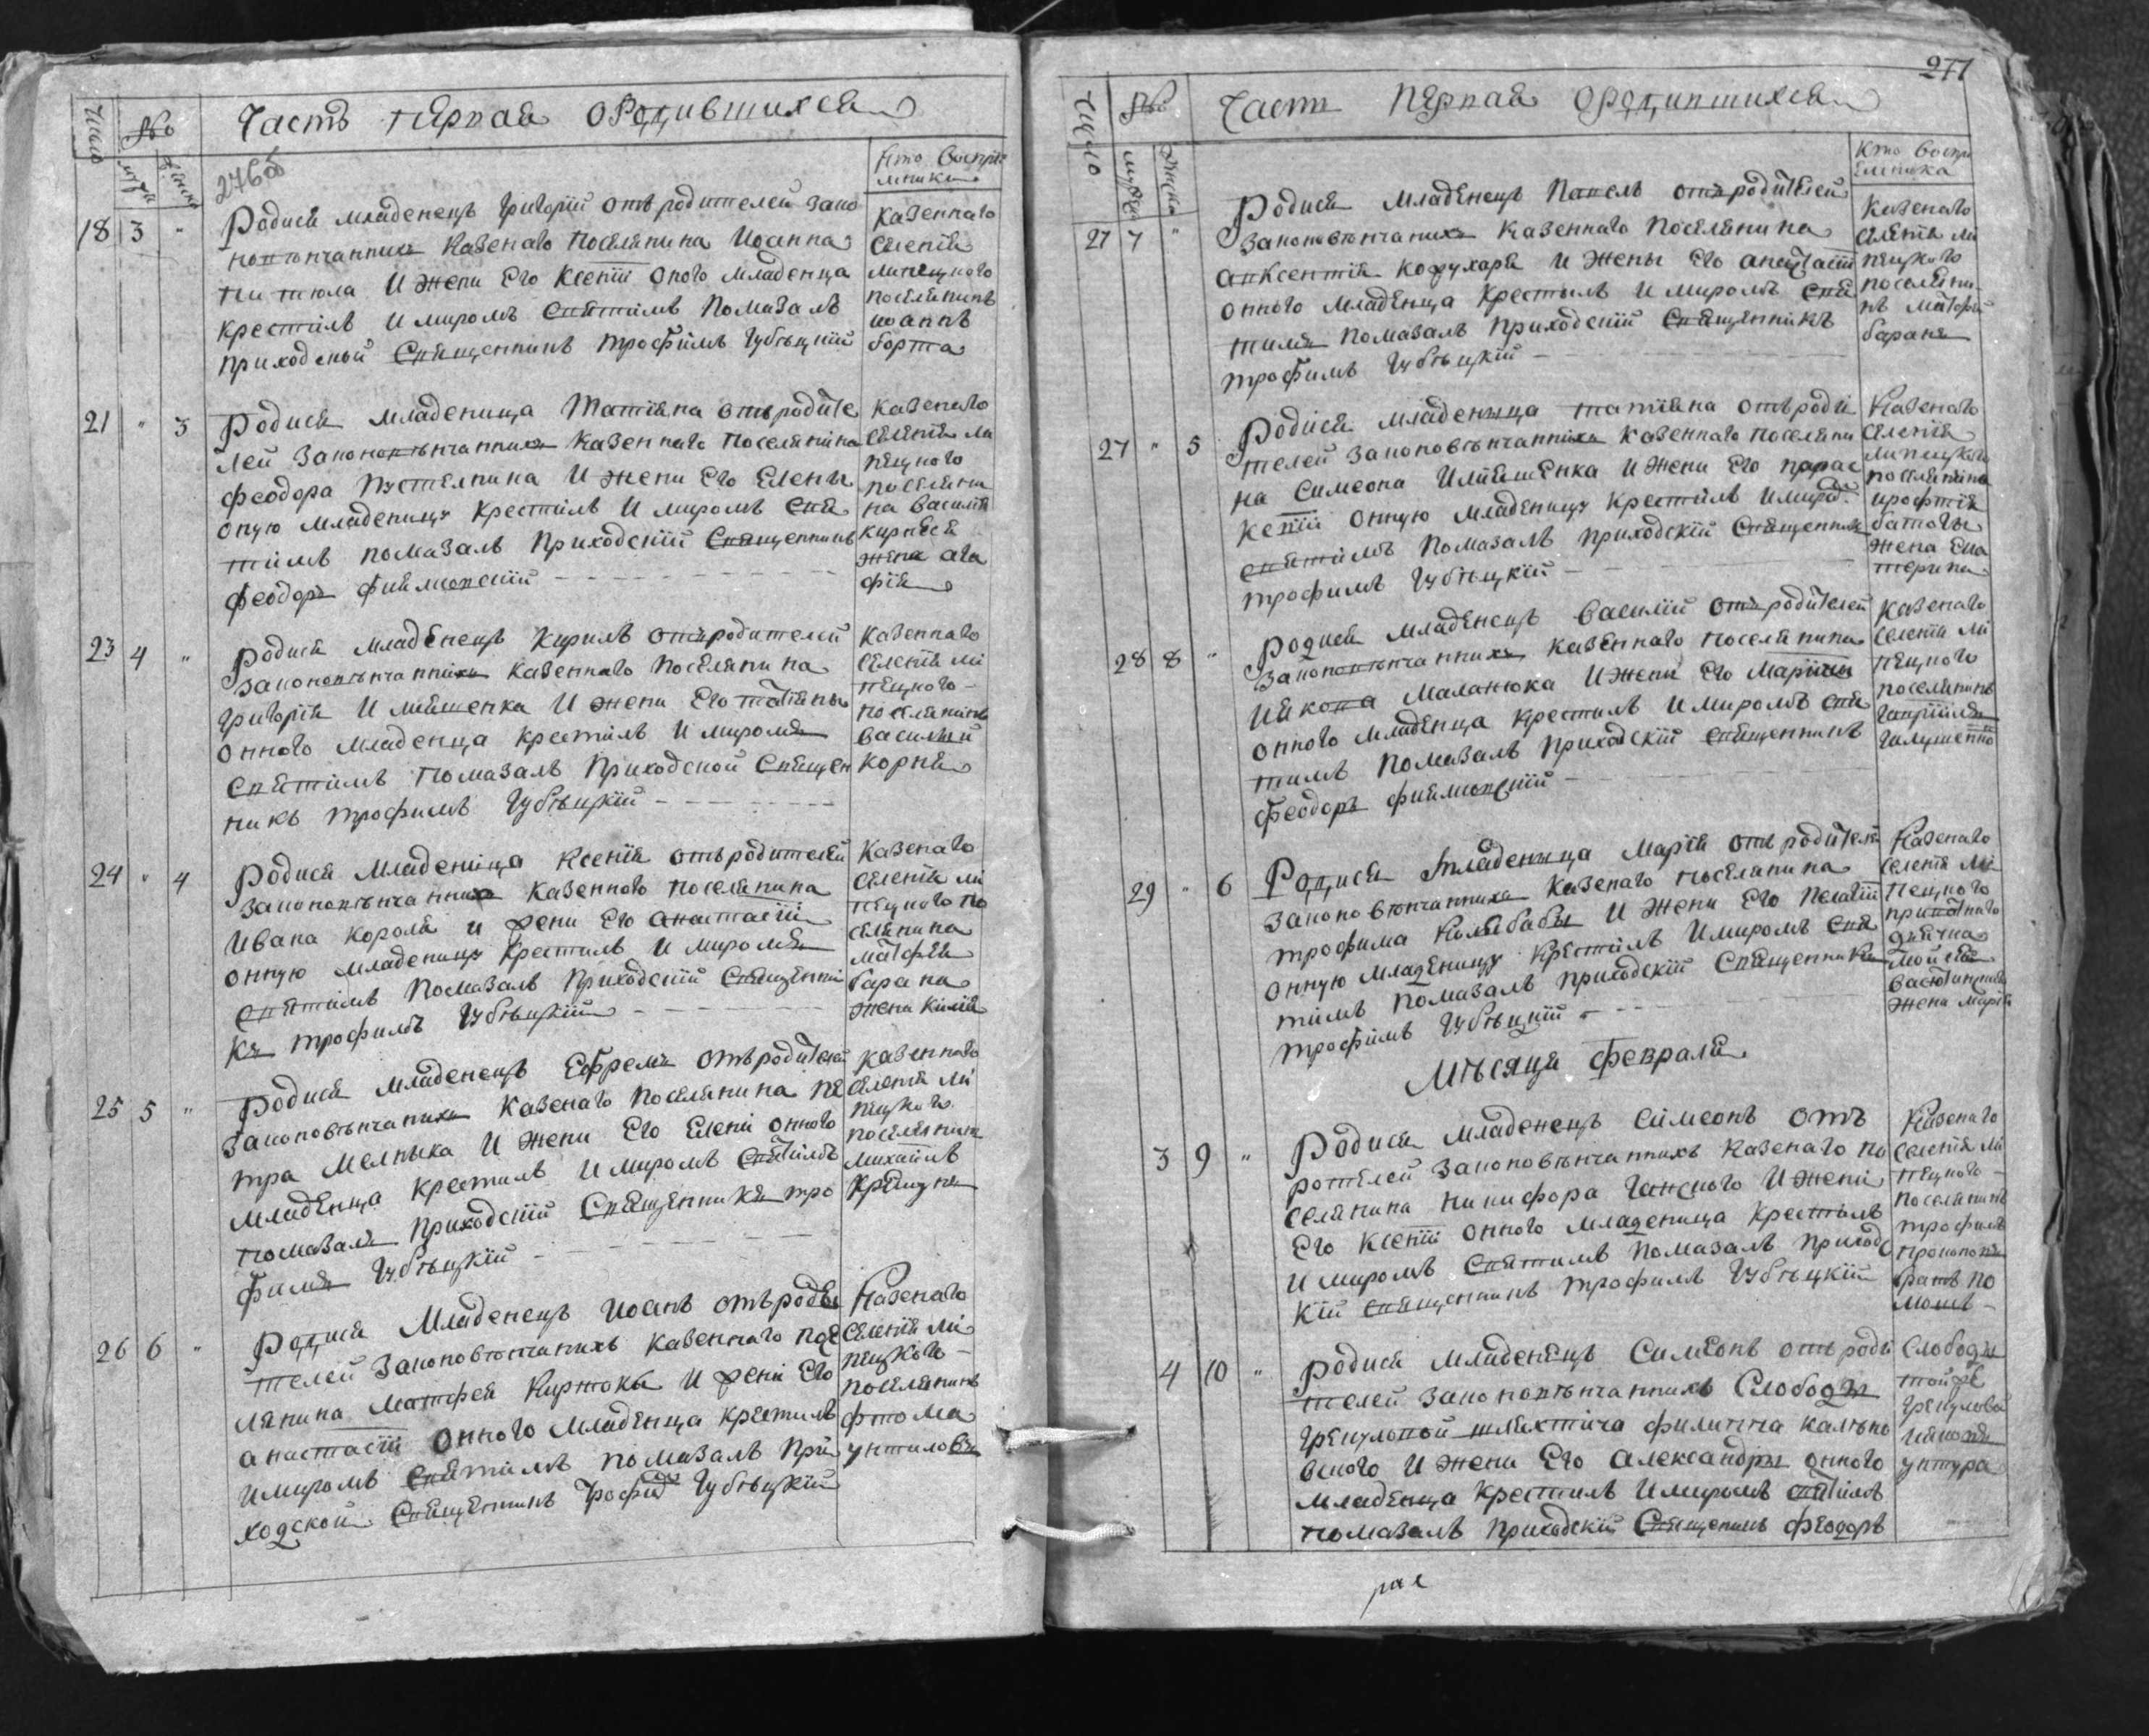 Часть первая о Родившихся
Число
№
муж
женск
276об
Кто Воспри
емники
18 3 "
Родися младенецъ Григорій отъ родителей зако
новѣнчанныхъ Казенаго Поселянина Иоанна
И жени Его Ксеніи оного младенца
крестилъ И миромъ Святимъ Помазалъ
приходской Священникъ трофимъ Губѣцкій
Казеннаго
Селенія
липецкого
поселянинъ
иоаннъ
борта
21 " 3
Родися младеница Татіяна отъ родите
лей законовѣнчанныхъ Казеннаго Поселянина
феодора Пустелника И жени Его Елены
оную младеницу крестилъ И миромъ Свя
тимъ помазалъ Приходскій Священникъ
феодоръ
Казенаго
селенія ли
пецкого
поселяни
на Василія
жена ага
фія
23 4 "
Родися младенецъ Кирилъ отъ родителей
законовѣнчанныхъ Казенного Поселянина
Григорія Иляшенка И жени Его татіяны
онного младенца крестилъ И миромъ
Святимъ Помазалъ Приходской Священ
никъ трофимъ Губѣцкій
Казеннаго
селенія ли
пецкого
поселянинъ
василий
корня
24 " 4
Родися младеница Ксенія отъ родителей
законовѣнчанныхъ казенного поселянина
Ивана короля и жени Его анастасіи
онную младеницу Крестилъ И миромъ
Святимъ Помазалъ Приходскій Священни
къ трофимъ Губѣцкій
Казенаго
селенія ли
пецкого по
селянина
матфея
барана
жена
25 5 "
Родися младенецъ Ефремъ отъ родителей
законовѣнчаныхъ Казенаго Поселянина Пе
тра Мелныка И жени Его Елени онного
младенца крестилъ И миромъ Святимъ
помазалъ Приходскій Священникъ тро
фимъ Губѣцкій
казеннаго
селенія ли
пецкого
поселянинъ
Михаилъ
26 6 "
Родися Младенецъ Иоанъ отъ роди
телей Законовѣнчаныхъ казеннаго посе
лянина Матфея Кирноки И жени Его
анастасіи онного младенца крестилъ
И миромъ Святимъ помазалъ При
ходской Священникъ Трофим Губѣцкій
Казенаго
селенія ли
пецкого
поселянинъ
фтома
унтиловъ
277
Число
№
мужеск
женска
Часть Первая о Родившихся
Кто Воспри
емника
27 7 "
Родися Младенецъ Павелъ отъ родителей
законовѣнчаныхъ Казенного Поселянина
авксентія кожухаря И Жены Его анастасіи
онного младенца Крестилъ И миромъ Свя
тимъ помазалъ приходскій Священникъ
трофимъ Губѣцкій
Казенаго
селенія ли
пецкого
поселяни
нъ матфей
баранъ
27 " 5
Родися младеница татіяна отъ роди
телей законовѣнчанныхъ казеннаго поселяни
на Симеона Иляшенка И жени Его парас
кевіи онную младеницу крестилъ И миро
святимъ Помазалъ приходскій Священникъ
трофимъ Губѣцкій
Казенаго
селенія
липецкого
поселянина
ирофтія
жена ека
терина
28 8 "
Родися младенецъ Василій отъ родителей
законовѣнчанныхъ казеннаго поселянина
Иякова Маланюка И жени Его Маріи
онного младенца крестилъ И миромъ свя
тимъ помазалъ Приходскій священникъ
феодоръ
казенаго
селенія ли
пецкого
поселянинъ
Гавріилъ
29 " 6
Родися младеница Марія отъ родителей
законовѣнчанныхъ казенаго поселянина
трофима Колибабы И жени Его Пелагіи
онную младеницу крестилъ И миромъ Свя
тимъ помазалъ приходскій Священникъ
трофимъ Губѣцкій
Казенаго
селенія ли
пецкого
дячка
Мойсея
жена Марія
Мѣсяця февраля
3 9 "
Родися младенецъ Симеонъ отъ
ротелей законовѣнчанныхъ казенаго по
селянина никифора Ганского И жени
Его Ксеніи онного младеница крестилъ
И миромъ Святимъ Помазалъ приход
кій священникъ трофимъ Губѣцкій
Казенаго
селенія ли
пецкого
поселянинъ
трофимъ
4 10 "
Родися младенецъ Симеонъ отъ роди
телей законовѣнчанныхъ Слободы
шляхтича филиппа
вского И жени Его Александры онного
младенца крестилъ И миромъ святимъ
помазалъ приходскій Священикъ феодоръ
Слободы
той же
унтура